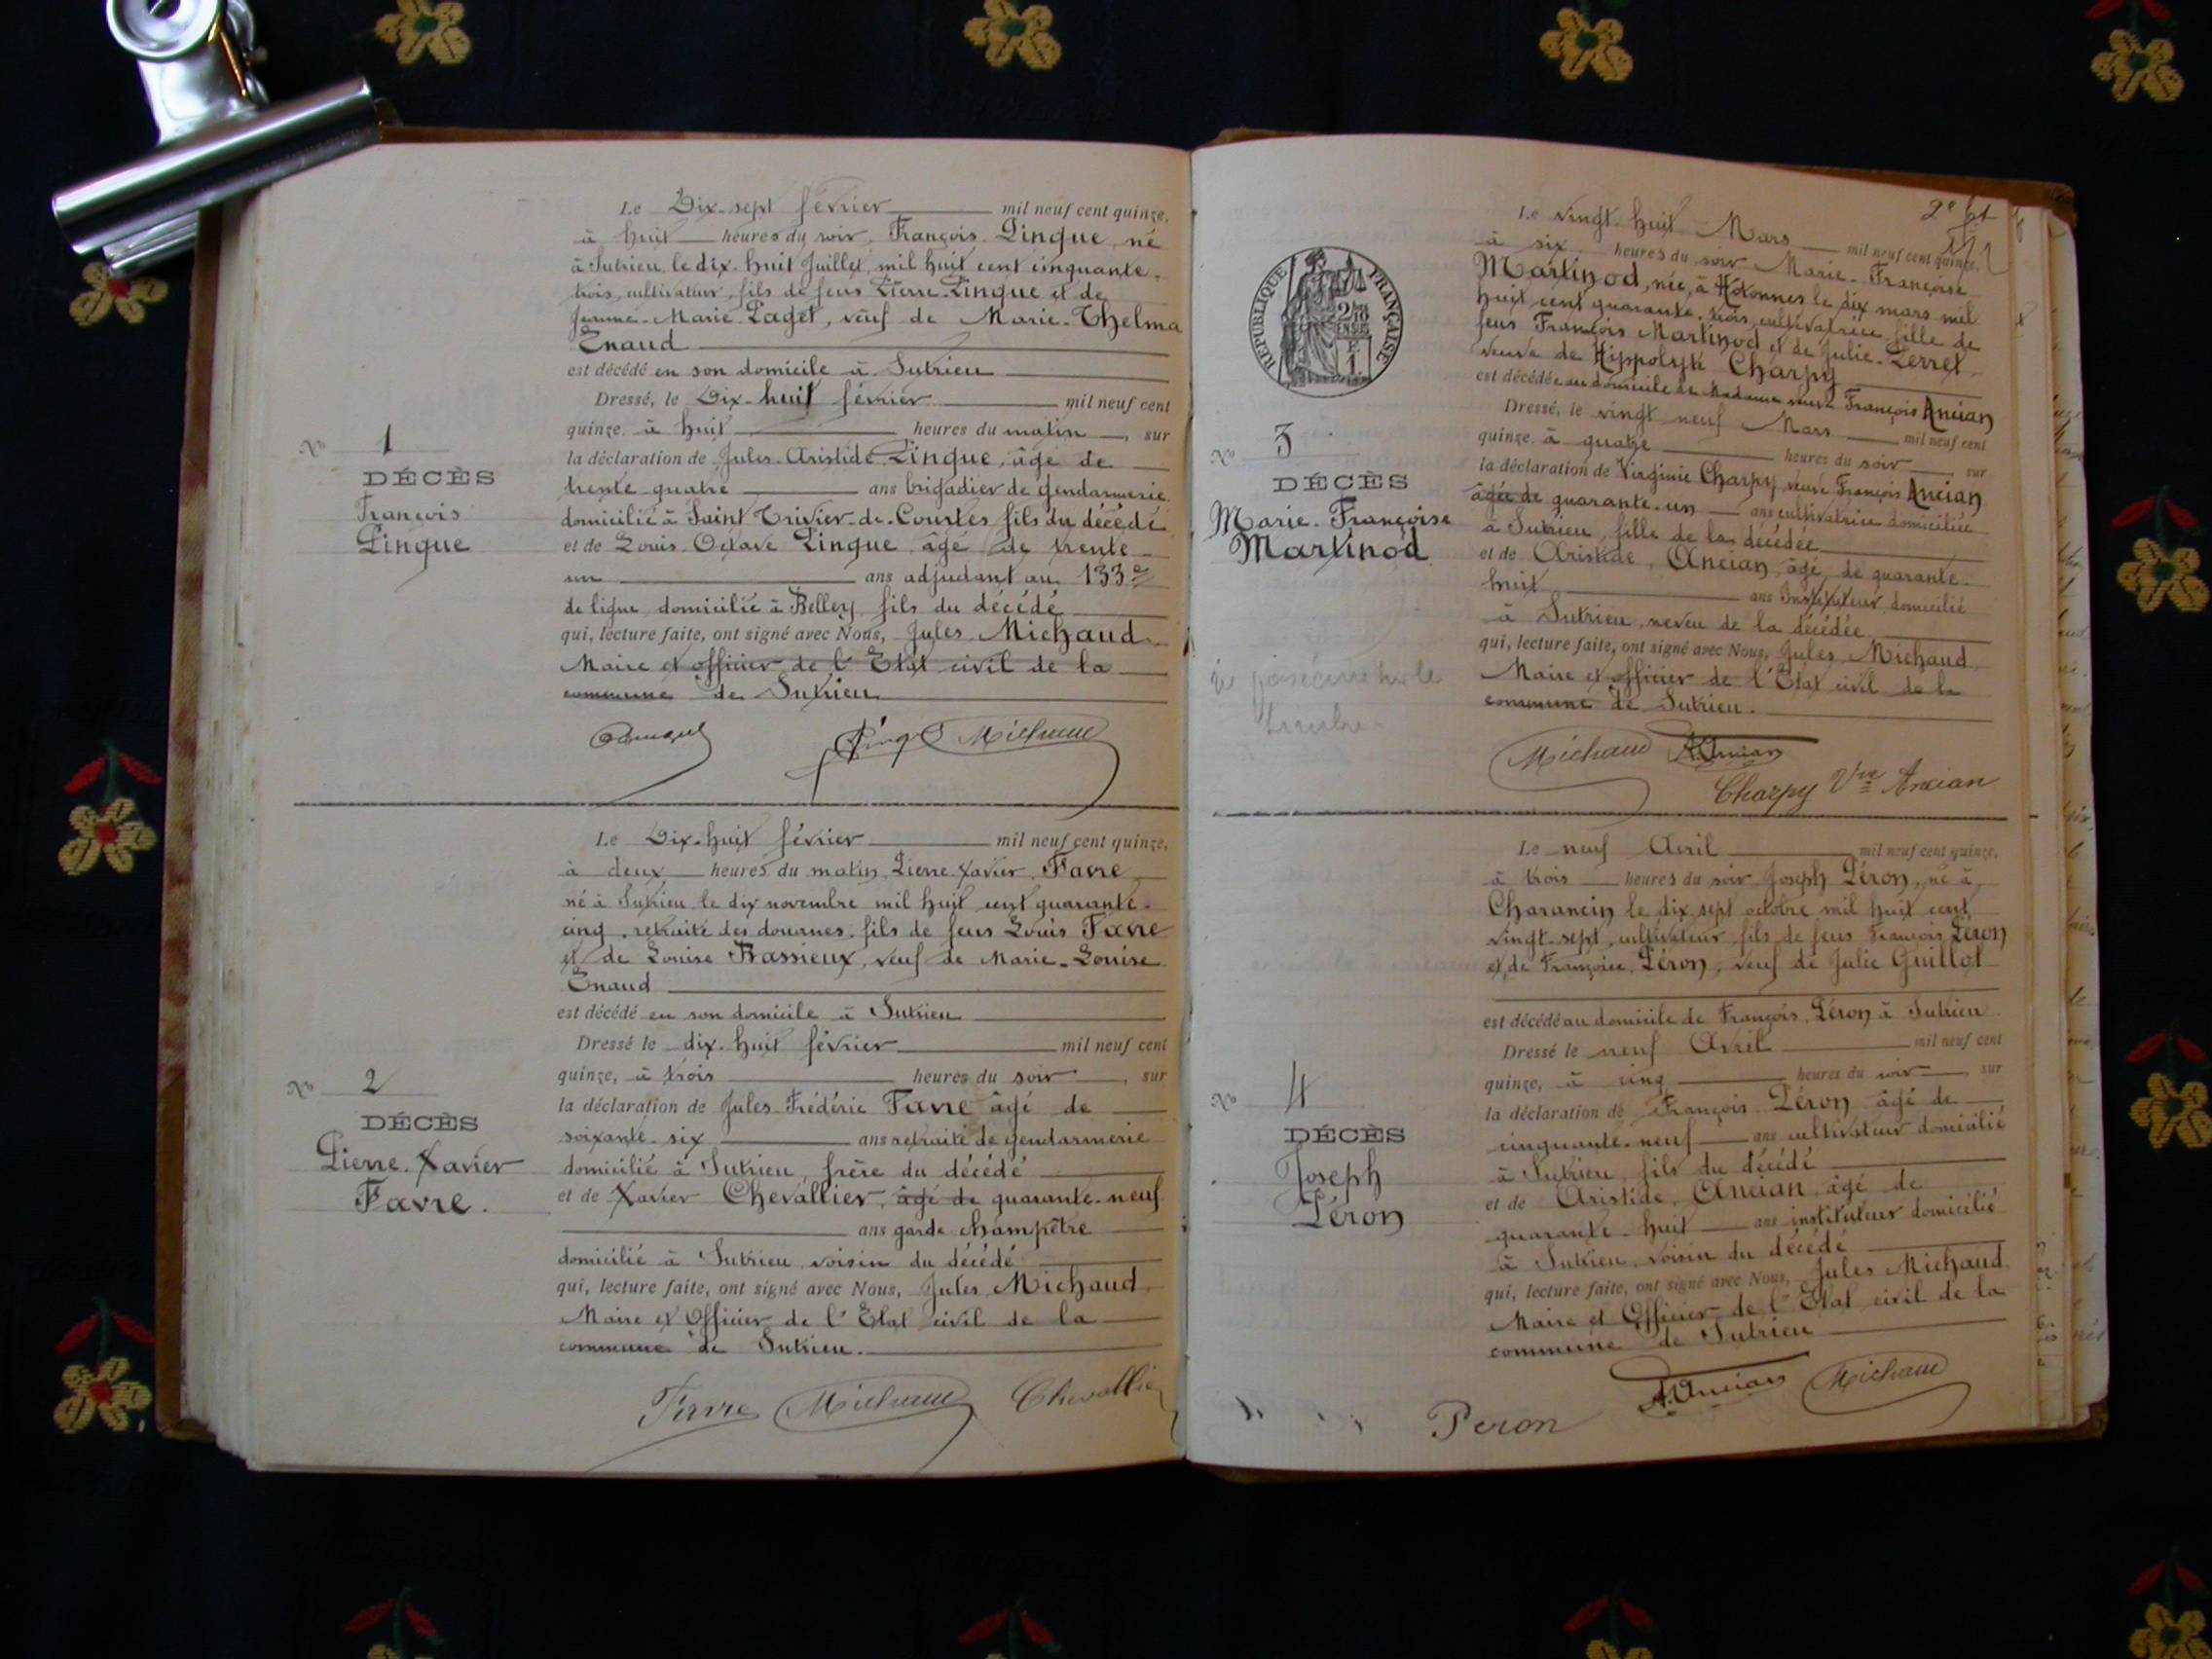 Le Dix-sept février mil neuf cent quinze,
à huit heures du soir, François Pingue, né
à Sutrieu le dix-huit Juillet mil huit cent cinquante-
trois, cultivateur, fils de feus Pierre Pingue et de
Jeanne-Marie Paget, veuf de Marie-Thelma
Enaud
est décédé en son domicile à Sutrieu
Dressé, le Dix-huit février mil neuf cent
quinze à huit heures du matin, sur
la déclaration de Jules-Aristide Pingue, âgé de
trente quatre ans brigadier de gendarmerie
domicilié à Saint Trivier-de-Courtes fils du décédé
et de Louis Octave Pingue âgé de trente-
un ans adjudant au 133e
de ligne domicilié à Belley fils du décédé
qui, lecture faite, ont signé avec Nous, Jules Michaud
Maire et officier de l'Etat civil de la
commune de Sutrieu
Michaud
N° 1
DÉCÈS
François
Pingue
Le Dix-huit février mil neuf cent quinze,
à deux heures du matin, Pierre-Xavier Favre
né à Sutrieu le dix novembre mil huit cent quarante-
cinq, retraité des douanes, fils de feus Louis Favre
et de Louise Bassieux, veuf de Marie-Louise
Enaud
est décédé en son domicile à Sutrieu
Dressé le dix-huit février mil neuf cent
quinze, à trois heures du soir, sur
la déclaration de Jules-Frédéric Favre âgé de
soixante-six ans retraité de gendarmerie
domicilié à Sutrieu, frère du décédé
et de Xavier Chevallier, âgé de quarante-neuf
ans garde champêtre
domicilié à Sutrieu voisin du décédé
qui, lecture faite, ont signé avec Nous, Jules Michaud,
Maire et Officier de l'Etat civil de la
commune de Sutrieu.
Favre Michaud Chevallier
N° 2
DÉCÈS
Pierre-Xavier
Favre.
2e
Le vingt-huit Mars mil neuf cent quinze,
à six heures du soir Marie-Françoise
Martinod, née à Hotonnes le dix mars mil
huit cent quarante-trois, cultivatrice fille de
feus François Martinod et de Julie Perret,
veuve de Hippolyte Charpy
est décédée au domicile de Madame veuve François Ancian
Dressé, le vingt neuf Mars mil neuf cent
quinze à quatre heures du soir, sur
la déclaration de Virginie Charpy veuve François Ancian
âgée de quarante-un ans cultivatrice domiciliée
à Sutrieu, fille de la décédée
et de Aristide Ancian, âgé de quarante-
huit ans Instituteur, domicilié
à Sutrieu, neveu de la décédée
qui, lecture faite, ont signé avec Nous, Jules Michaud
Maire et officier de l'Etat civil de la
commune de Sutrieu.
Michaud A. Ancian
Charpy Vve Ancian
RÉPUBLIQUE FRANÇAISE
N° 3
DÉCÈS
Marie-Françoise
Martinod
Le neuf Avril mil neuf cent quinze,
à trois heures du soir Joseph Péron, né à
Charancin le dix sept octobre mil huit cent
vingt-sept, cultivateur, fils de feus François Péron
et de Françoise Péron, veuf de Julie Guillot
est décédé au domicile de François Péron à Sutrieu
Dressé le neuf Avril mil neuf cent
quinze, à cinq heures du soir, sur
la déclaration de François Péron âgé de
cinquante-neuf ans cultivateur domicilié
à Sutrieu, fils du décédé
et de Aristide Ancian, âgé de
quarante-huit ans instituteur domicilié
à Sutrieu voisin du décédé
qui, lecture faite, ont signé avec Nous, Jules Michaud
Maire et Officier de l'Etat civil de la
commune de Sutrieu
Peron A. Ancian Michaud
N° 4
DÉCÈS
Joseph
Péron